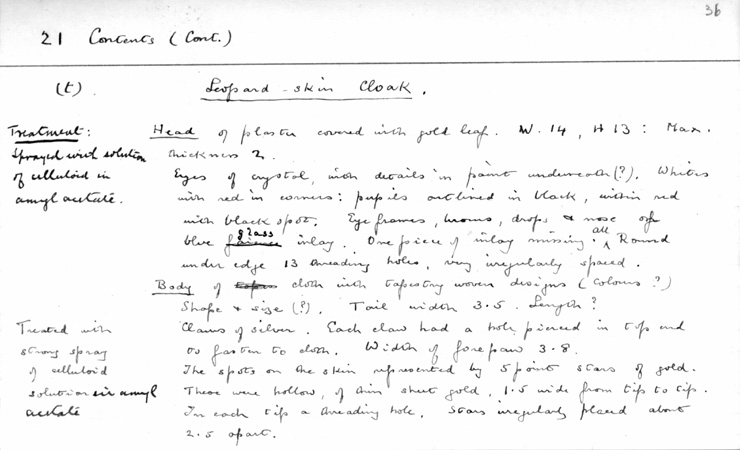 36
21 Contents (Cont.)
(t) Leopard-skin Cloak.
Treatment:
Sprayed with solution
of celluloid in
amyl acetate.
Head of plaster covered with gold leaf. W. 14, H 13: Max.
thickness 2.
Eyes of crystal, with details in paint underneath (?). Whites
with red in corners: pupils outlined in black, within red
with black spot. Eye frames, brows, drops & nose of
blue faience glass inlay. One piece of inlay missing. all Round
under edge 13 threading holes, very irregularly spaced.
Body of cloth with tapestry woven designs (Colours?)
Shape & size (?). Tail width 3.5. Length?
Claws of silver. Each claw had a hole pierced in top end
to fasten to cloth. Width of forepaw 3.8.
Treated with
strong spray
of celluloid
solution in amyl
acetate
The spots on the skin represented by 5 point stars of gold.
These were hollow, of thin sheet gold, 1.5 wide from tip to tip.
In each tip a threading hole. Stars irregularly placed about
2.5 apart.